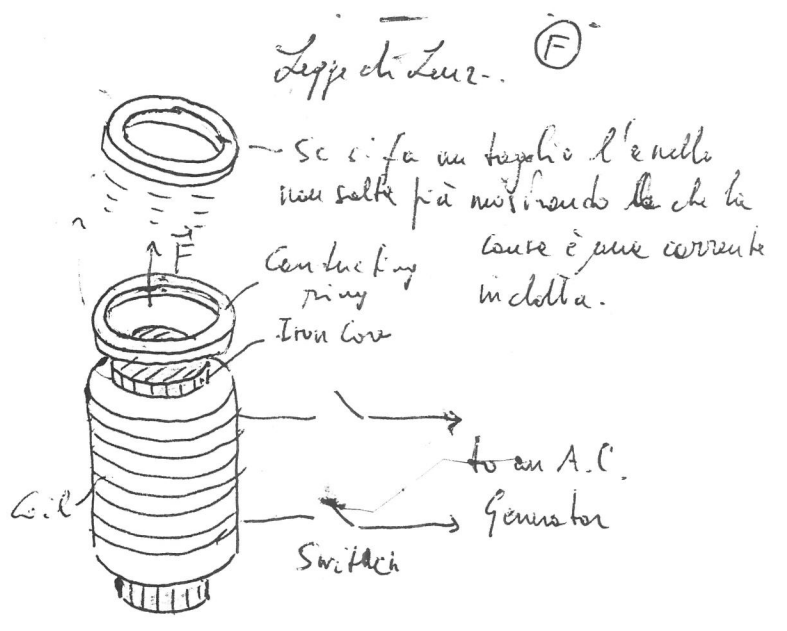 Legge di Lenz.
F
Se si fa un taglio l'anello
non salta più mostrando che la
causa è una corrente
indotta.
F
Conducting
ring
Iron Core
to an A.C.
Generator
Coil
Switch